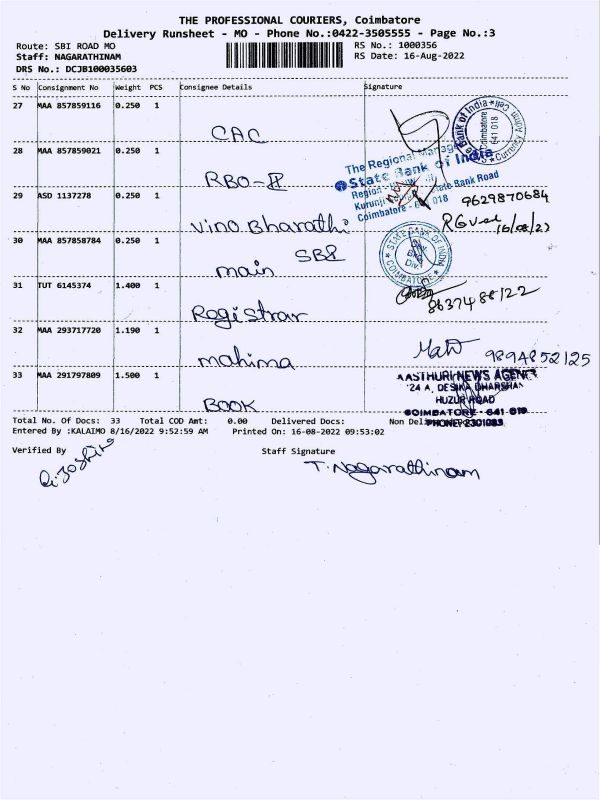 THE PROFESSIONAL COURIERS, Coimbatore
Delivery Runsheet - MO - Phone No.:0422-3505555 - Page No.:3
Route: SBI ROAD MO RS No.: 1000356
Staff: NAGARATHINAM RS Date: 16-Aug-2022
DRS No.: DCJB100035603
S No Consignment No Weight PCS Consignee Details Signature
27 MAA 857859116 0.250 1
CAC
Bank of India
Coimbatore
641 018
Currency Admn Cell
28 MAA 857859021 0.250 1
RBO-II
The Regional Manager
State Bank of India
Region
State Bank Road
Kurunji
Coimbatore - 641 018
29 ASD 1137278 0.250 1
Vino Bharathi
9629870684
16/08/22
30 MAA 857858784 0.250 1
main SBI
STATE BANK OF INDIA
COIMBATORE
31 TUT 6145374 1.400 1
Registrar
32 MAA 293717720 1.190 1
mahima
9894852125
33 MAA 291797809 1.500 1
BOOK
AASTHURI NEWS AGENCY
24 A, DESIKA DHARSHAN
HUZUR ROAD
COIMBATORE - 641 018
PHONE: 2301083
Total No. Of Docs: 33 Total COD Amt: 0.00 Delivered Docs: Non Del
Entered By :KALAIMO 8/16/2022 9:52:59 AM Printed On: 16-08-2022 09:53:02
Verified By Staff Signature
T. Nagarathinam